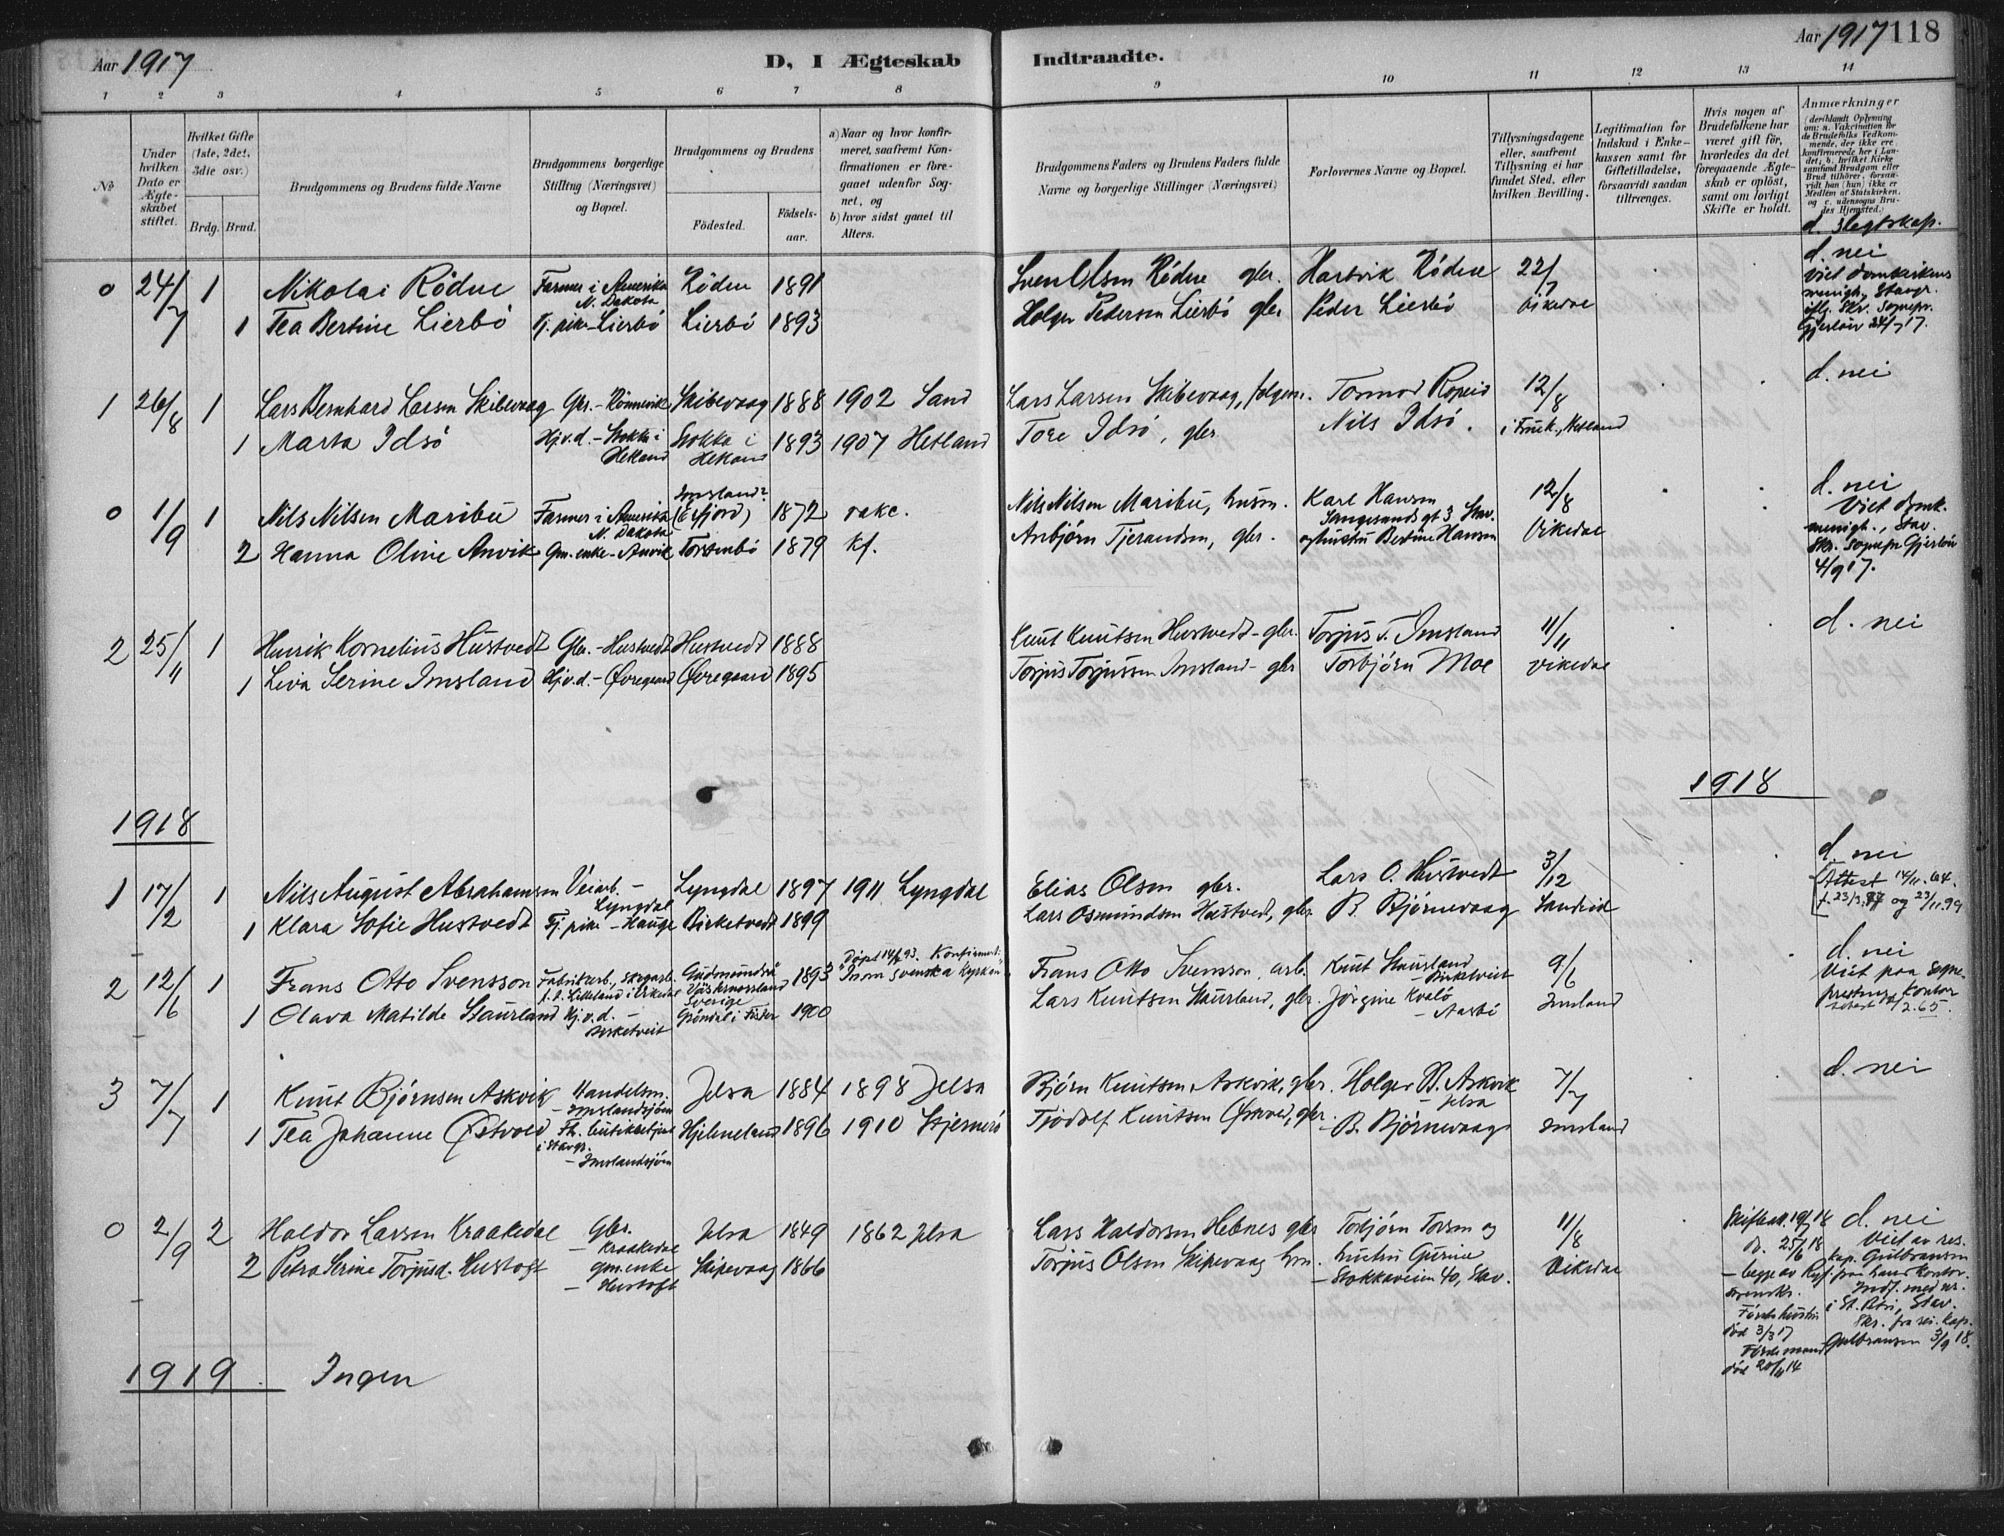 Aar 1917
D, I Ægteskab Indtraadte.
Aar 1917 118
1 2 3 4 5 6 7 8 9 10 11 12 13 14
№
Under hvilken Dato er Ægteskabet stiftet.
Hvilket Gifte (1ste, 2det, 3die osv.)
Brdg. Brud.
Brudgommens og Brudens fulde Navne
Brudgommens borgerlige Stilling (Næringsvei) og Bopæl.
Brudgommens og Brudens
Födested.
Födsels-aar.
a) Naar og hvor konfirmeret, saafremt Konfirmationen er foregaaet udenfor Sognet, og
b) hvor sidst gaaet til Alters.
Brudgommens Faders og Brudens Faders fulde Navne og borgerlige Stillinger (Næringsvei)
Forlovernes Navne og Bopæl.
Tillysningsdagene eller, saafremt Tillysning ei har fundet Sted, efter hvilken Bevilling.
Legitimation for Indskud i Enkekassen samt for Giftetilladelse, forsaavidt saadan tiltrænges.
Hvis nogen af Brudefolkene har været gift för, hvorledes da det foregaaende Ægteskab er oplöst, samt om lovligt Skifte er holdt.
Anmærkninger
(deriblandt Oplysning om: a. Vakcination for de Brudefolks Vedkommende, der ikke ere konfirmerede her i Landet; b. hvilket Kirkesamfund Brudgom eller Brud tilhörer, forsaavidt han (hun) ikke er Medlem af Statskirken, og c. udensogns Brudes Hjemsted.)
d. slegtskap.
0 24/7 1 Nikolai Rödne Farmer i Amerika N. Dakota Rödne 1891 Sven Olsen Rödne gbr. Hartvik Rödne 22/7 d. nei
1 Tea Bertine Lierbö Tj. pike - Lierbö Lierbö 1893 Holger Pedersen Lierbö gbr Peder Lierbö Vikedal
Viet domkirkens menigh. Stavgr. iflg. Skr. Sognepr. Gjerlöw 24/7 17.
1 26/8 1 Lars Bernhard Larsen Skibevaag Gbr. - Skibevaag 1888 1902 Sand Lars Larsen Skibevaag, Tormod Ropeid 12/8 d. nei
1 Marta Idsö Hj.v.d. - Stokka i Hetland Stokka i Hetland 1893 1907 Hetland Tore Idsö, gbr. Nils Idsö. i Hetland
0 1/9 1 Nils Nilsen Maribu Farmer i Amerika N. Dakota Imsland? 1872 vakc. Nils Nilsen Maribu, husm. Karl Hansen 12/8 d. nei
Stav.
2 Hanna Oline Anvik Gm. enke - Anvik Torsenbö 1879 kf. Anbjörn Tjerandsen, gbr. og hustru Bertine Hansen Vikedal
Viet domk. menigh., Stav. Skr. Sognepr. Gjerlöw 4/9 17.
2 25/11 1 Henrik Kornelius Hustvedt Gbr. - Hustvedt Hustvedt 1888 Knut Knutsen Hustvedt - gbr. Torjus T. Imsland 11/11 d. nei
1 Liva Serine Imsland Hj.v.d. - Övregaard Övregaard 1895 Torjus Torjussen Imsland - gbr Torbjörn Moe Vikedal
1918
1918
1 17/2 1 Nils August Abrahamsen Veiarb. - Lyngdal Lyngdal 1897 1911 Lyngdal Elias Olsen gbr. Lars O. Hustvedt 3/12 d. nei
1 Klara Sofie Hustvedt Tj. pike - Hauge Birketvedt 1899 Lars Osmundsen Hustvedt, gbr B. Björnevaag Sandeid
Attest 14/11. 64. og 23/11. 99
2 12/6 1 Frans Otto Svensson Fabrikarb., skogarb. Lilleland i Vikedal Gudmundrå Västernorrland Sverige 1893 Frans Otto Svensson, arb. Knut Staurland 9/6 d. nei
Birketveit
1 Olava Matilde Staurland Hj.v.d. - Birketveit Gröndal i 1900 Lars Knutsen Staurland, gbr. Jörgine Kvalö - Aarbö Imsland
Viet paa Sogneprestens Kontor
3 7/7 1 Knut Björnsen Askvik Handelsm. - Imslandsjöen Jelsa 1884 1898 Jelsa Björn Knutsen Askvik, gbr. Holger B. Askvik - Jelsa 7/7 d. nei
1 Tea Johanne Östvold Fh. butikbetjent i Stavgr. - Imslandsjöen Hjelmeland 1896 1910 Stjernerö Tjödolf Knutsen Östvold, gbr. B. Björnevaag Imsland
0 2/9 2 Haldor Larsen Kraakedal Gbr. - Kraakedal Jelsa 1849 1862 Jelsa Lars Haldorsen Hebnes gbr Torbjörn Torsen og 11/8 d. nei
2 Petra Serine Torjusd. Hustoft gm. enke - Hustoft Skipevaag 1866 Torjus Olsen Skipevaag hm. hustru Gurine - Stokkaveien 40, Stav. Vikedal
Skifteatt. 19/7 18
do. 25/6 18
- begge av Ryf. sorenskr.
Förste hustru död 3/3 17
Förste mand död 20/11 14
Viet av res. kap. Gulbransen fra hans Kontor. Indf. med nr. i St. Petri, Stav. Skr. fra res. kap. Gulbransen 3/9 18.
1919 Ingen